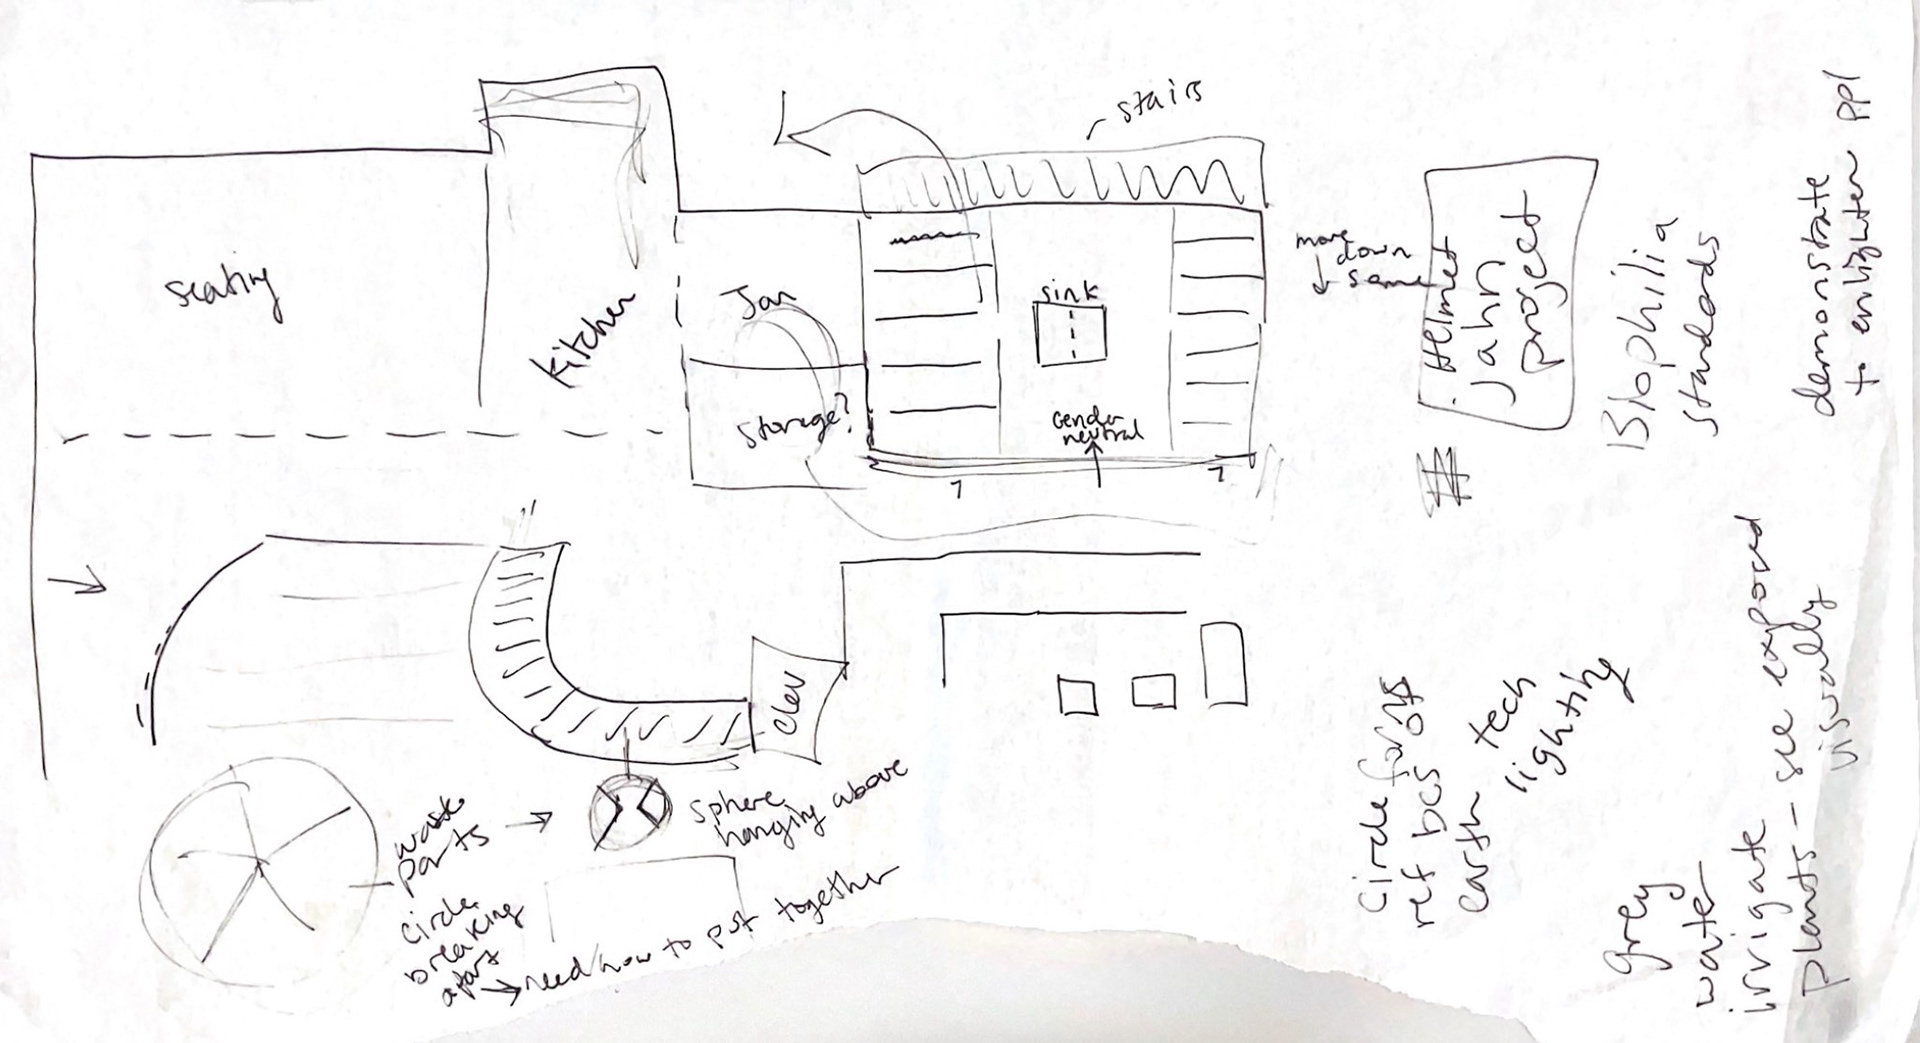 stairs
seating
Kitchen
Jan
storage?
sink
Gender
neutral
7
7
move
down
same
Helmet
Jahn
project
Biophilia
standards
demonstrate
to enlighten ppl
elev
waste
parts
circle
breaking
apart
need how to put together
sphere
hanging above
circle forms
ref bcs of
earth tech
lighting
grey
water
irrigate
plants - see exposed
visually